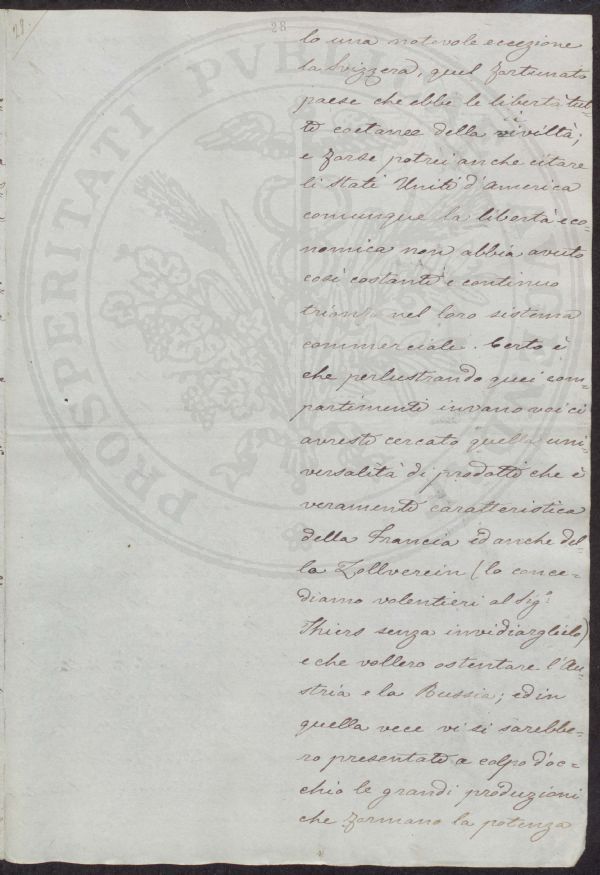 29.
28
lo una notevole eccezione
la Svizzera, quel fortunato
paese che ebbe le libertà tut-
te coetanee della civiltà;
e forse potrei anche citare
li Stati Uniti d'America
comunque la libertà eco-
nomica non abbia avuto
così costante e continuo
trionfo nel loro sistema
commerciale. Certo è
che perlustrando quei com-
partimenti invano voi ci
avreste cercato quella uni
versalità di prodotti che è
veramente caratteristica
della Francia ed anche del-
la Zollverein (lo conce-
diamo volentieri al Sig.r
Thiers senza invidiarglielo)
e che vollero ostentare l'Au-
stria e la Russia; ed in
quella vece vi si sarebbe-
ro presentate a colpo d'oc-
chio le grandi produzioni
che formano la potenza
PROSPERITATI PUBLICAE